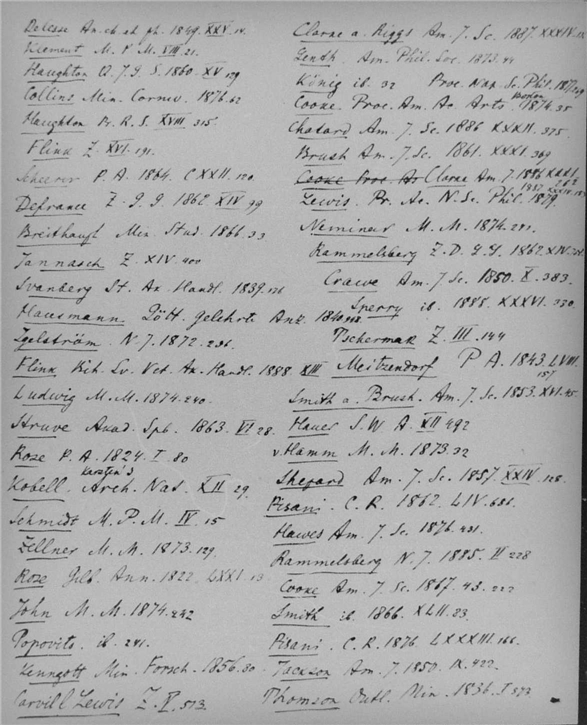 Delesse An. ch. et ph. 1849. XXV. 14.
Klement M. P. M. VIII. 21.
Haughton Q. J. G. S. 1860. XV 129
Collins Min. Cornw. 1876. 62
Haughton Pr. R. S. XVIII. 315.
Flink Z. XVI. 191.
Scheerer P. A. 1864. CXXII. 120.
Defrance Z. G. G 1862. XIV 99
Breithaupt Min. Stud. 1866. 33
Jannasch Z. XIV. 400
Svanberg St. Ak. Handl. 1839. 126
Hausmann Gött. Gelehrte Anz. 1840
Igelström N. J. 1872. 296.
Flink Bih. Sv. Vet. Ak. Handl. 1888. XIII
Ludwig M. M. 1874. 240.
Struve Akad. Spb. 1863. VI 28.
Rose P. A. 1824. I 80
Kobell. Karsten's Arch. Nat. XII 29.
Schmidt M. P. M. IV. 15
Zellner M. M. 1873. 129.
Rose Gilb. Ann. 1822. LXXI. 13
John M. M. 1874. 242
Popovits. ib. 241.
Kenngott Min. Forsch. 1856. 80
Carvill Lewis Z. V. 573.
Clarke a. Riggs Am. J. Sc. 1887. XXXIV.
Genth. Am. Phil. Soc. 1873. 44
König ib. 32 Proc. Nap. Sc. Phil. 1877
Cooke. Proc. Am. Ac. Arts. Boston 1874. 35
Chatard Am. J. Sc. 1886 XXXII. 375.
Brush Am. J. Sc. 1861. XXXI. 369
Cooke Proc. Ac Clarke Am. J. 1886 XXXI
Lewis. Pr. Ac. N. Sc. Phil. 1879. 1887 XXXIV.
Neminar M. M. 1874.
Rammelsberg Z. D. G. G. 1862. XIV.
Crawe Am. J. Sc. 1850. X. 383.
Sperry ib. 1888. XXXVI. 330.
Tschermak Z. III. 144
Meitzendorf P A. 1843. LVIII. 157
Smith a. Brush. Am. J. Sc. 1853. XVI. 45.
Hauer S. W A. XII 492
v. Hamm M. M. 1873. 32
Shepard Am. J. Sc. 1857. XXIV. 128.
Pisani. C. R. 1862. LIV. 686.
Hawes Am. J. Sc. 1876. 431.
Rammelsberg N. J. 1885. II 228
Cooke Am. J. Sc. 1867. 43. 222
Smith ib. 1866. XLII. 23.
Pisani. C. R. 1876. LXXXIII. 166.
Jackson Am. J. 1850. IX. 422.
Thomson Outl. Min. 1836. I 373